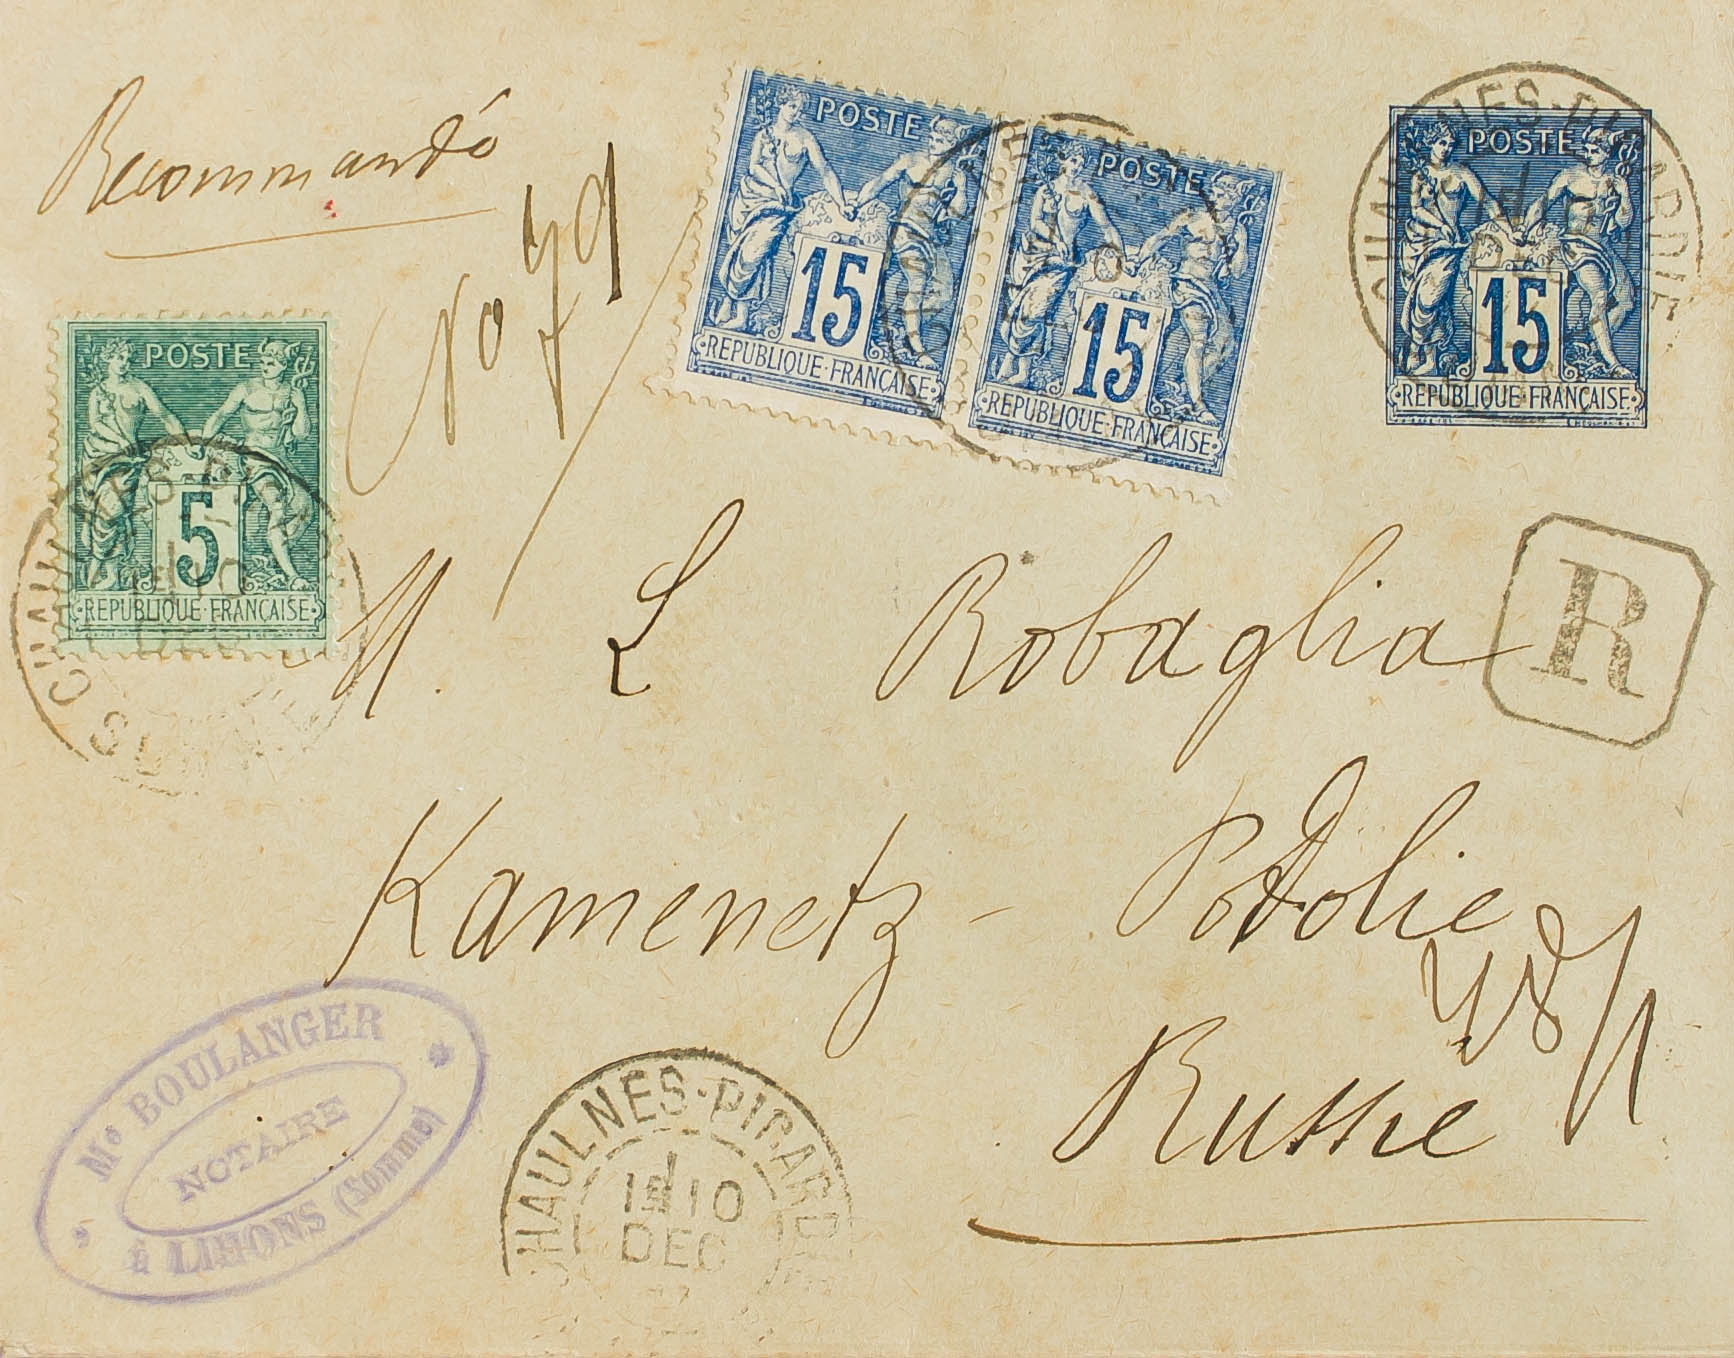 Recommandé
No 79
POSTE
15
REPUBLIQUE FRANÇAISE
POSTE
15
REPUBLIQUE FRANÇAISE
POSTE
15
REPUBLIQUE FRANÇAISE
POSTE
5
REPUBLIQUE FRANÇAISE
CHAULNES
SOMME
R
M. L Robaglia
Kamenetz - Podolie
Russie
Me BOULANGER
NOTAIRE
à LIHONS (Somme)
CHAULNES-PICARDIE
10
DEC